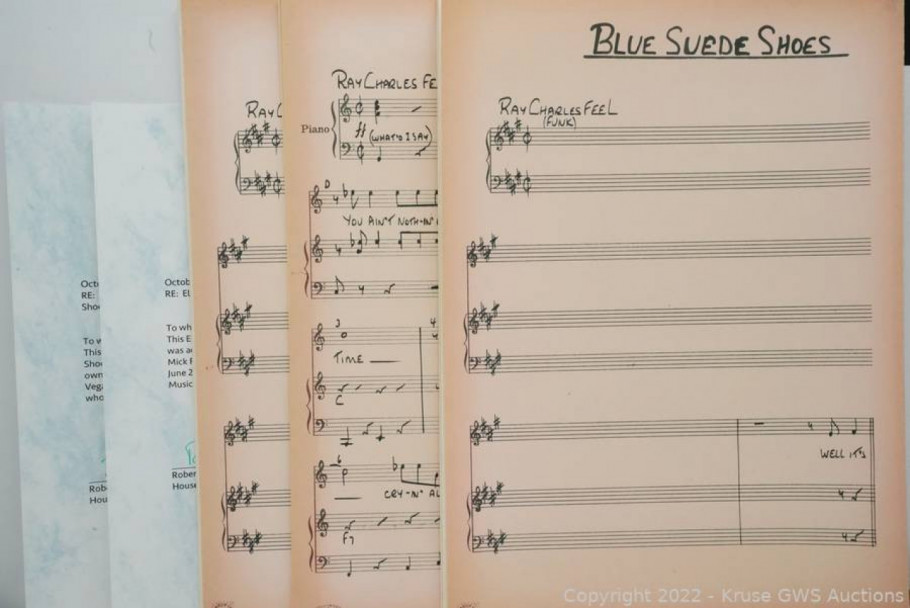 Octo
RE:
Sho
To w
This
Sho
own
Vega
who
Rob
Hou
Octob
RE: El
To wh
This E
was a
Mick F
June 2
Music
Rober
House
RAY C
RAY CHARLES FE
Piano
(WHAT'D I SAY)
D
YOU AIN'T NOTH-IN'
3
TIME
C
CRY-N' AL
F7
BLUE SUEDE SHOES
RAY CHARLES FEEL
(FUNK)
WELL IT'S
Copyright 2022 - Kruse GWS Auctions